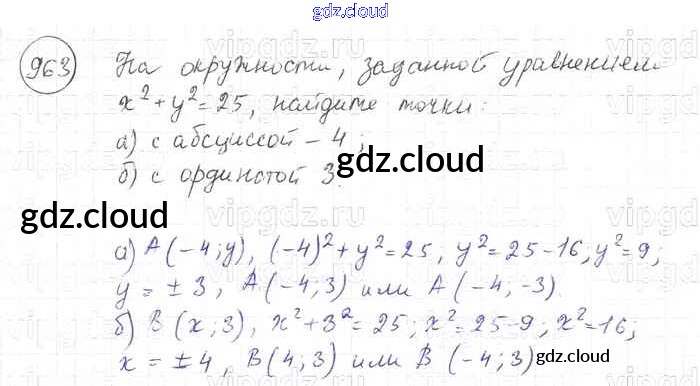 gdz.cloud
963 На окружности, заданной уравнением
x² + y² = 25, найдите точки:
а) с абсциссой – 4;
б) с ординатой 3.
gdz.cloud
gdz.cloud
а) A(-4; y), (-4)² + y² = 25; y² = 25 - 16; y² = 9;
y = ± 3, A(-4; 3) или A(-4; -3).
б) B(x; 3), x² + 3² = 25; x² = 25 - 9; x² = 16;
x = ± 4, B(4; 3) или B(-4; 3)
gdz.cloud